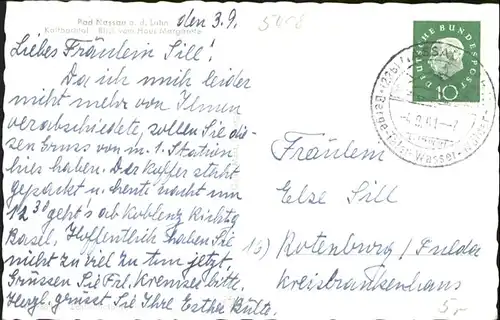 Bad Nassau a. d. Lahn
Kaltbachtal Blick vom Haus Margarete
den 3.9.
5408
Liebes Fräulein Sill!
Da ich mich leider
nicht mehr von Ihnen
verabschiedete, sollen Sie die-
sen Gruss von m. 1. Station
hier haben. Der Koffer steht
gepackt u. heute nacht um
12 30 geht's ab Koblenz Richtg
Basel. Hoffentlich haben Sie
nicht zu viel zu tun jetzt.
Grüssen Sie Frl. Kremser bitte.
Herzl. grüsst Sie Ihre Esther Bülte.
DEUTSCHE BUNDESPOST
10
NASSAU
-4.9.61.-7
Berge-Täler-Wasser-Wälder
Fräulein
Else Sill
16) Rotenburg / Fulda
Kreiskrankenhaus
5,-